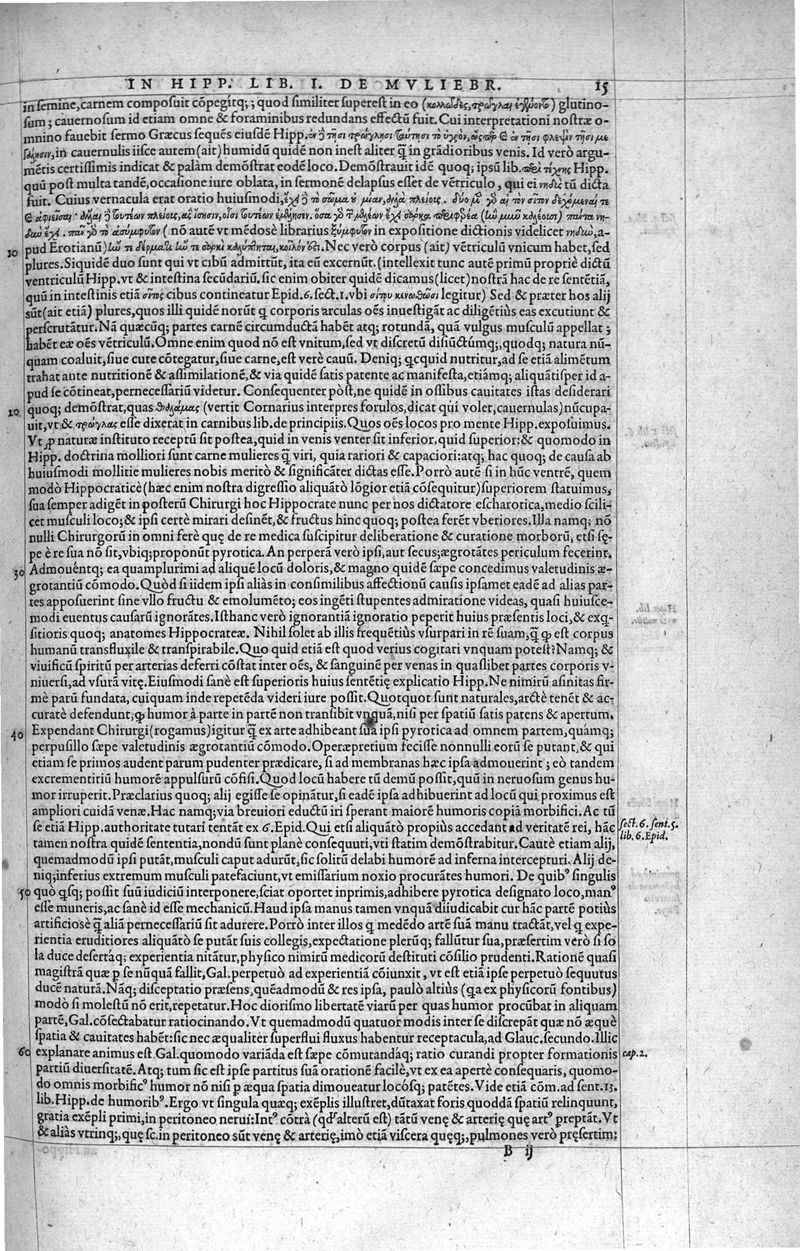 IN HIPP. LIB. I. DE MVLIEBR. 15
in semine,carnem composuit cōpegitq;; quod similiter superest in eo ( ) glutino-
sum; cauernosum id etiam omne & foraminibus redundans effectū fuit. Cui interpretationi nostræ o-
mnino fauebit sermo Græcus sequēs eiusdē Hipp.
in cauernulis iisce autem (ait) humidū quidē non inest aliter q̃ in grādioribus venis. Id verò argu-
mētis certissimis indicat & palàm demōstrat eodē loco. Demōstrauit idē quoq; ipsū lib. Hipp.
quū post multa tandē, occasione iure oblata, in sermonē delapsus esset de vētriculo, qui ei tū dicta
fuit. Cuius vernacula erat oratio huiusmodi,
( nō autē vt mēdosè librarius in expositione dictionis videlicet a-
10 pud Erotianū) Nec verò corpus (ait) vētriculū vnicum habet, sed
plures. Siquidē duo sunt qui vt cibū admittūt, ita eū excernūt. (intellexit tunc autē primū propriè dictū
ventriculū Hipp. vt & intestina secūdariū. sic enim obiter quidē dicamus (licet) nostrā hac de re sentētiā,
quū in intestinis etiā cibus contineatur Epid. 6. sect. 1. vbi legitur) Sed & præter hos alij
sūt (ait etiā) plures, quos illi quidē norūt q corporis arculas oēs inuestigāt ac diligētiùs eas excutiunt &
perscrutātur. Nā quæcūq; partes carnē circumductā habēt atq; rotundā, quā vulgus musculū appellat;
habēt eæ oēs vētriculū. Omne enim quod nō est vnitum, sed vt discretū disiūctúmq;, quodq; natura nū-
quam coaluit, siue cute cōtegatur, siue carne, est verè cauū. Deniq; qcquid nutritur, ad se etiā alimētum
trahat ante nutritionē & assimilationē, & via quidē satis patente ac manifesta, etiámq; aliquātisper id a-
pud se cōtineat, pernecessariū videtur. Consequenter pòst, ne quidē in ossibus cauitates istas desiderari
20 quoq; demōstrat, quas (vertit Cornarius interpres forulos, dicat qui volet, cauernulas) nūcupa-
uit, vt & esse dixerat in carnibus lib. de principiis. Quos oēs locos pro mente Hipp. exposuimus.
Vt naturæ instituto receptū sit postea, quid in venis venter sit inferior, quid superior: & quomodo in
Hipp. doctrina molliori sunt carne mulieres q̃ viri, quia rariori & capaciori: atq; hac quoq; de causa ab
huiusmodi mollitie mulieres nobis meritò & significāter dictas esse. Porrò autē si in hūc ventrē, quem
modò Hippocraticè (hæc enim nostra digressio aliquātò lōgior etiā cōsequitur) superiorem statuimus,
sua semper adigēt in posterū Chirurgi hoc Hippocrate nunc per nos dictatore escharotica, medio scili-
cet musculi loco; & ipsi certè mirari desinēt, & fructus hinc quoq; postea ferēt vberiores. Illa namq; nō
nulli Chirurgorū in omni ferè quę de re medica suscipitur deliberatione & curatione morborū, etsi sę-
pe è re sua nō sit, vbiq; proponūt pyrotica. An perperā verò ipsi, aut secus; ægrotātes periculum fecerint.
30 Admouēntq; ea quamplurimi ad aliquē locū doloris, & magno quidē sæpe concedimus valetudinis æ-
grotantiū cōmodo. Quòd si iidem ipsi aliàs in consimilibus affectionū causis ipsamet eadē ad alias par-
tes apposuerint sine vllo fructu & emolumēto; eos ingēti stupentes admiratione videas, quasi huiusce-
modi euentus causarū ignorātes. Isthanc verò ignorantiā ignoratio peperit huius præsentis loci, & exq-
sitioris quoq; anatomes Hippocrateæ. Nihil solet ab illis frequētiùs vsurpari in rē suam, q̃ est corpus
humanū transfluxile & transpirabile. Quo quid etiā est quod verius cogitari vnquam potest? Namq; &
viuificū spiritū per arterias deferri cōstat inter oēs, & sanguinē per venas in quaslibet partes corporis v-
niuersi, ad vsurā vitę. Eiusmodi sanè est superioris huius sentētię explicatio Hipp. Ne nimirū asinitas fir-
mè parū fundata, cuiquam inde repetēda videri iure possit. Quotquot sunt naturales, arctè tenēt & ac-
curatè defendunt, humor à parte in partē non transibit vnquā, nisi per spatiū satis patens & apertum.
40 Expendant Chirurgi (rogamus) igitur q̃ ex arte adhibeant sua ipsi pyrotica ad omnem partem, quámq;
perpusillo sæpe valetudinis ægrotantiū cōmodo. Operæpretium fecisse nonnulli eorū se putant, & qui
etiam se primos audent parum pudenter prædicare, si ad membranas hæc ipsa admouerint; eò tandem
excrementitiū humorē appulsurū cōfisi. Quod locū habere tū demū possit, quū in neruosum genus hu-
mor irruperit. Præclarius quoq; alij egisse se opinātur, si eadē ipsa adhibuerint ad locū qui proximus est
ampliori cuidā venæ. Hac namq; via breuiori eductū iri sperant maiorē humoris copiā morbifici. Ac tū
se etiā Hipp. authoritate tutari tentāt ex 6. Epid. Qui etsi aliquātò propiùs accedant ad veritatē rei, hāc
tamen nostra quidē sententia, nondū sunt planè consequuti, vti statim demōstrabitur. Cautè etiam alij,
quemadmodū ipsi putāt, musculi caput adurūt, sic solitū delabi humorē ad inferna intercepturi. Alij de-
niq; inferius extremum musculi patefaciunt, vt emissarium noxio procurātes humori. De quib⁹ singulis
50 quò qsq; possit suū iudiciū interponere, sciat oportet inprimis, adhibere pyrotica designato loco, man⁹
esse muneris, ac sanè id esse mechanicū. Haud ipsa manus tamen vnquā diiudicabit cur hāc partē potiùs
artificiosè q̃ aliā perneccessariū sit adurere. Porrò inter illos q medēdo artē suā manu tractāt, vel q expe-
rientia eruditiores aliquātò se putāt suis collegis, expectatione plerūq; fallūtur sua, præsertim verò si so
la duce desertáq; experientia nitātur, physico nimirū medicorū destituti cōsilio prudenti. Rationē quasi
magistrā quæ p se nūquā fallit, Gal. perpetuò ad experientiā cōiunxit, vt est etiā ipse perpetuò sequutus
ducē naturā. Nāq; disceptatio præsens, quēadmodū & res ipsa, paulò altiùs (q̃ ex physicorū fontibus)
modò si molestū nō erit, repetatur. Hoc diorismo libertatē viarū per quas humor procūbat in aliquam
partē, Gal. cōsectabatur ratiocinando. Vt quemadmodū quatuor modis inter se discrepāt quæ nō æquè
spatia & cauitates habēt: sic nec æqualiter superflui fluxus habentur receptacula, ad Glauc. secundo. Illic
60 explanare animus est Gal. quomodo variāda est sæpe cōmutandáq; ratio curandi propter formationis
partiū diuersitatē. Atq; tum sic est ipse partitus suā orationē facilè, vt ex ea apertè consequaris, quomo-
do omnis morbific⁹ humor nō nisi p æqua spatia dimoueatur locósq; patētes. Vide etiā cōm. ad sent. 13.
lib. Hipp. de humorib⁹. Ergo vt singula quæq; exēplis illustret, dūtaxat foris quoddā spatiū relinquunt,
gratia exēpli primi, in peritoneo nerui: Int⁹ cōtrà (qd' alterū est) tātū venę & arterię quę art⁹ preptāt. Vt
& aliàs vtrinq;, quę sc. in peritoneo sūt venę & arterię, imò etiā viscera quęq;, pulmones verò pręsertim;
sect. 6. sent. 5.
lib. 6. Epid.
cap. 2.
B ij